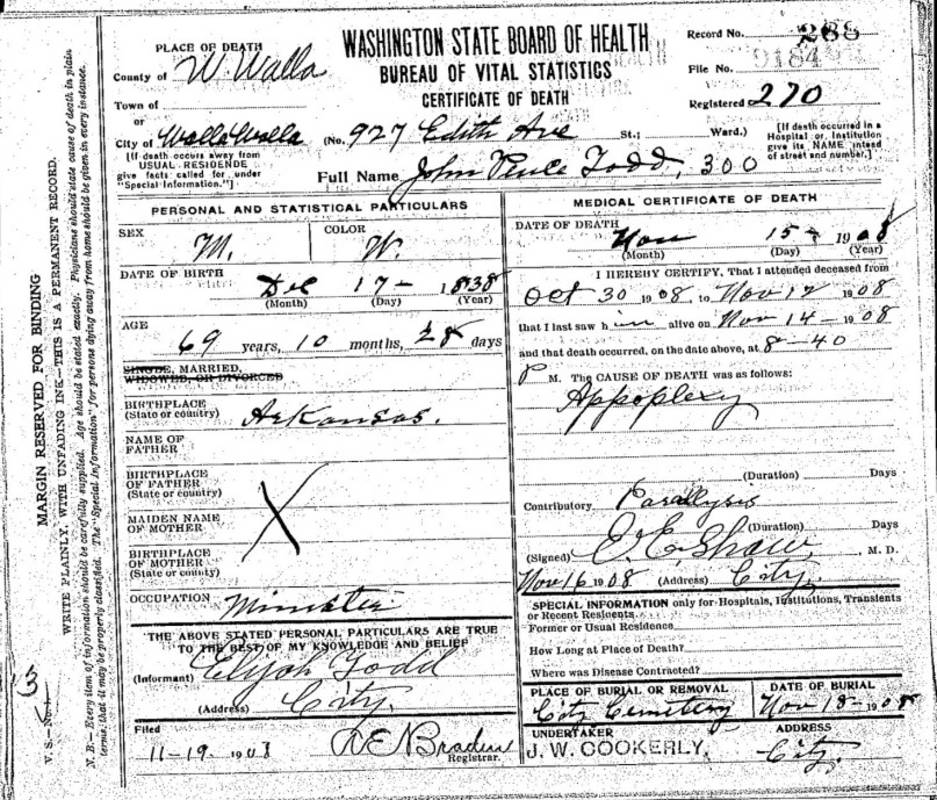 WASHINGTON STATE BOARD OF HEALTH
BUREAU OF VITAL STATISTICS
CERTIFICATE OF DEATH
Record No. 288
File No. 9184
Registered 270
PLACE OF DEATH
County of W. Walla
Town of
or
City of Walla Walla (No. 927 Edith Ave St.; Ward.)
[If death occurs away from
USUAL RESIDENCE
give facts called for under
"Special Information."]
[If death occurred in a
Hospital or Institution
give its NAME instead
of street and number.]
Full Name John Todd, 300
PERSONAL AND STATISTICAL PARTICULARS
SEX M.
COLOR W.
DATE OF BIRTH
Dec 17 - 1838
(Month) (Day) (Year)
AGE
69 years, 10 months, 28 days
SINGLE, MARRIED,
WIDOWED, OR DIVORCED
BIRTHPLACE
(State or country) Arkansas.
NAME OF
FATHER
BIRTHPLACE
OF FATHER
(State or country)
MAIDEN NAME
OF MOTHER
BIRTHPLACE
OF MOTHER
(State or country)
OCCUPATION Minister
THE ABOVE STATED PERSONAL PARTICULARS ARE TRUE
TO THE BEST OF MY KNOWLEDGE AND BELIEF
(Informant) Elijah Todd
(Address) City.
Filed
11-19- 1908
Registrar.
MEDICAL CERTIFICATE OF DEATH
DATE OF DEATH
Nov 15 - 1908
(Month) (Day) (Year)
I HEREBY CERTIFY, That I attended deceased from
Oct 30 1908, to Nov 1908
that I last saw him alive on Nov 14 - 1908
and that death occurred, on the date above, at 8-40
P M. The CAUSE OF DEATH was as follows:
Appoplexy
(Duration) Days
Contributory Paralysis
(Duration) Days
(Signed) E. E. Shaw, M. D.
Nov 16 1908 (Address) City.
SPECIAL INFORMATION only for Hospitals, Institutions, Transients
or Recent Residents.
Former or Usual Residence
How Long at Place of Death?
Where was Disease Contracted?
PLACE OF BURIAL OR REMOVAL
City Cemetery
DATE OF BURIAL
Nov 18 - 1908
UNDERTAKER
J. W. COOKERLY.
ADDRESS
City.
MARGIN RESERVED FOR BINDING
WRITE PLAINLY, WITH UNFADING INK—THIS IS A PERMANENT RECORD.
N. B.—Every item of information should be carefully supplied. Age should be stated exactly. Physicians should state cause of death in plain
terms, that it may be properly classified. The "Special Information" for persons dying away from home should be given in every instance.
V. S.—No. 1.